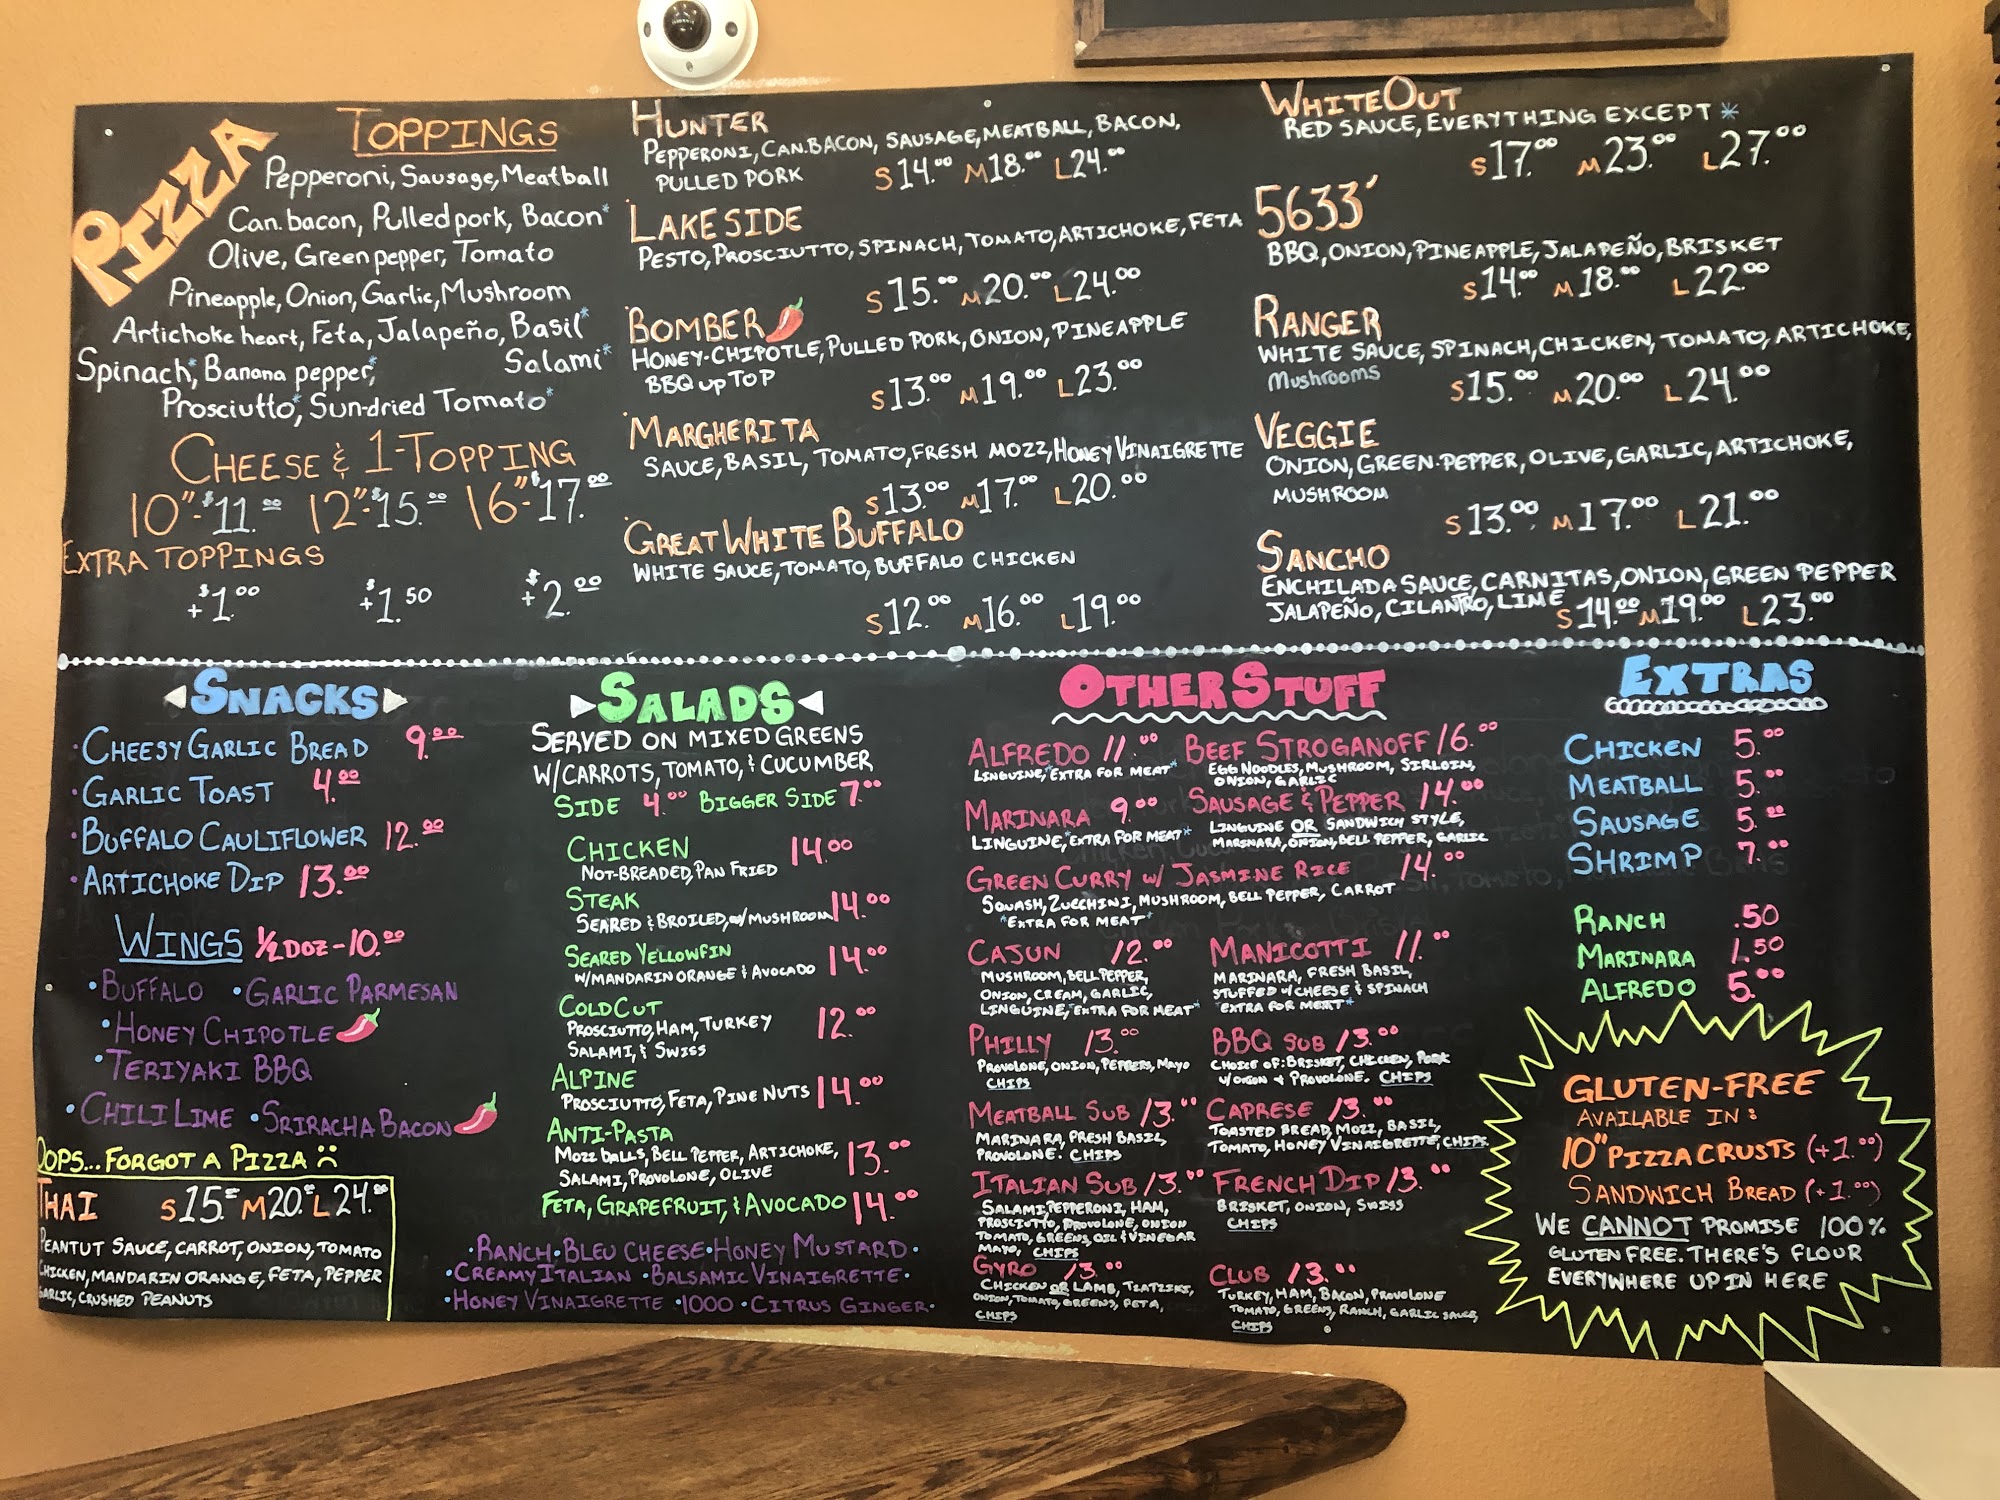 PIZZA
TOPPINGS
Pepperoni, Sausage, Meatball
Can. bacon, Pulled pork, Bacon*
Olive, Green pepper, Tomato
Pineapple, Onion, Garlic, Mushroom
Artichoke heart, Feta, Jalapeño, Basil*
Spinach*, Banana pepper*, Salami*
Prosciutto*, Sun-dried Tomato*
CHEESE & 1-TOPPING
10"-$11.00 12"-$15.00 16"-$17.00
EXTRA TOPPINGS
+$1.00 +$1.50 +$2.00
HUNTER
PEPPERONI, CAN. BACON, SAUSAGE, MEATBALL, BACON,
PULLED PORK S14.00 M18.00 L24.00
LAKE SIDE
PESTO, PROSCIUTTO, SPINACH, TOMATO, ARTICHOKE, FETA
S15.00 M20.00 L24.00
BOMBER
HONEY-CHIPOTLE, PULLED PORK, ONION, PINEAPPLE
BBQ up TOP
S13.00 M19.00 L23.00
MARGHERITA
SAUCE, BASIL, TOMATO, FRESH MOZZ, HONEY VINAIGRETTE
S13.00 M17.00 L20.00
GREAT WHITE BUFFALO
WHITE SAUCE, TOMATO, BUFFALO CHICKEN
S12.00 M16.00 L19.00
WHITEOUT
RED SAUCE, EVERYTHING EXCEPT *
S17.00 M23.00 L27.00
5633'
BBQ, ONION, PINEAPPLE, JALAPEÑO, BRISKET
S14.00 M18.00 L22.00
RANGER
WHITE SAUCE, SPINACH, CHICKEN, TOMATO, ARTICHOKE,
Mushrooms
S15.00 M20.00 L24.00
VEGGIE
ONION, GREEN-PEPPER, OLIVE, GARLIC, ARTICHOKE,
MUSHROOM
S13.00 M17.00 L21.00
SANCHO
ENCHILADA SAUCE, CARNITAS, ONION, GREEN PEPPER
JALAPEÑO, CILANTRO, LIME S14.00 M19.00 L23.00
SNACKS
CHEESY GARLIC BREAD 9.00
GARLIC TOAST 4.00
BUFFALO CAULIFLOWER 12.00
ARTICHOKE DIP 13.00
WINGS 1/2 DOZ-10.00
•BUFFALO •GARLIC PARMESAN
•HONEY CHIPOTLE
•TERIYAKI BBQ
•CHILI LIME •SRIRACHA BACON
OOPS...FORGOT A PIZZA
THAI S15.00 M20.00 L24.00
PEANTUT SAUCE, CARROT, ONION, TOMATO
CHICKEN, MANDARIN ORANGE, FETA, PEPPER
GARLIC, CRUSHED PEANUTS
SALADS
SERVED ON MIXED GREENS
W/CARROTS, TOMATO, & CUCUMBER
SIDE 4.00 BIGGER SIDE 7.00
CHICKEN 14.00
NOT-BREADED, PAN FRIED
STEAK 14.00
SEARED & BROILED, W/ MUSHROOM
SEARED YELLOWFIN 14.00
W/MANDARIN ORANGE & AVOCADO
COLD CUT 12.00
PROSCIUTTO, HAM, TURKEY
SALAMI, & SWISS
ALPINE 14.00
PROSCIUTTO, FETA, PINE NUTS
ANTI-PASTA 13.00
MOZZ BALLS, BELL PEPPER, ARTICHOKE,
SALAMI, PROVOLONE, OLIVE
FETA, GRAPEFRUIT, & AVOCADO 14.00
•RANCH•BLEU CHEESE•HONEY MUSTARD•
•CREAMY ITALIAN •BALSAMIC VINAIGRETTE•
•HONEY VINAIGRETTE •1000 •CITRUS GINGER•
OTHER STUFF
ALFREDO 11.00
LINGUINE, *EXTRA FOR MEAT*
BEEF STROGANOFF 16.00
EGG NOODLES, MUSHROOM, SIRLOIN,
ONION, GARLIC
MARINARA 9.00
LINGUINE, *EXTRA FOR MEAT*
SAUSAGE & PEPPER 14.00
LINGUINE OR SANDWICH STYLE,
MARINARA, ONION, BELL PEPPER, GARLIC
GREEN CURRY W/ JASMINE RICE 14.00
SQUASH, ZUCCHINI, MUSHROOM, BELL PEPPER, CARROT
*EXTRA FOR MEAT*
CAJUN 12.00
MUSHROOM, BELL PEPPER,
ONION, CREAM, GARLIC,
LINGUINE, *EXTRA FOR MEAT*
MANICOTTI 11.00
MARINARA, FRESH BASIL,
STUFFED W/CHEESE & SPINACH
*EXTRA FOR MEAT*
PHILLY 13.00
PROVOLONE, ONION, PEPPERS, MAYO
CHIPS
BBQ SUB 13.00
CHOICE OF: BRISKET, CHICKEN, PORK
W/ONION & PROVOLONE. CHIPS
MEATBALL SUB 13.00
MARINARA, FRESH BASIL,
PROVOLONE. CHIPS
CAPRESE 13.00
TOASTED BREAD, MOZZ, BASIL,
TOMATO, HONEY VINAIGRETTE, CHIPS
ITALIAN SUB 13.00
SALAMI, PEPPERONI, HAM,
PROSCIUTTO, PROVOLONE, ONION
TOMATO, GREENS, OIL & VINEGAR
MAYO, CHIPS
FRENCH DIP 13.00
BRISKET, ONION, SWISS
CHIPS
GYRO 13.00
CHICKEN OR LAMB, TZATZIKI,
ONION, TOMATO, GREENS, FETA,
CHIPS
CLUB 13.00
TURKEY, HAM, BACON, PROVOLONE
TOMATO, GREENS, RANCH, GARLIC SAUCE,
CHIPS
EXTRAS
CHICKEN 5.00
MEATBALL 5.00
SAUSAGE 5.00
SHRIMP 7.00
RANCH .50
MARINARA 1.50
ALFREDO 5.00
GLUTEN-FREE
AVAILABLE IN:
10" PIZZA CRUSTS (+1.00)
SANDWICH BREAD (+1.00)
WE CANNOT PROMISE 100%
GLUTEN FREE. THERE'S FLOUR
EVERYWHERE UP IN HERE